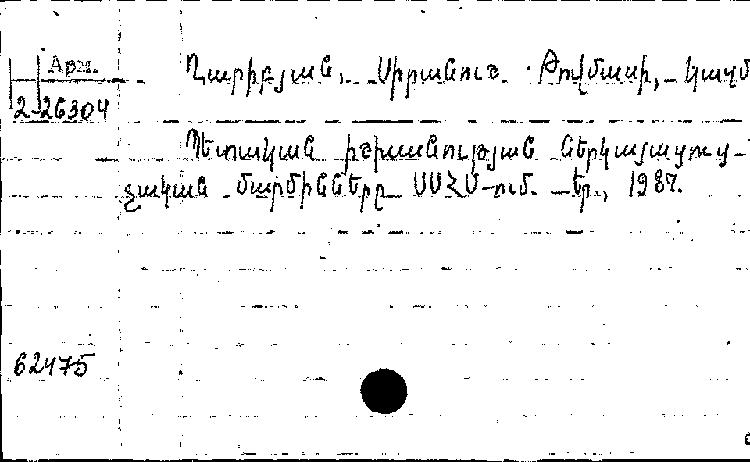 Арм.
2-26304
Ղարիբյան, Սիրանուշ Թովմասի, կազմ
Պետական իշխանության ներկայացուց-
չական մարմինները ՍՍՀՄ-ում. Եր., 1987.
62475